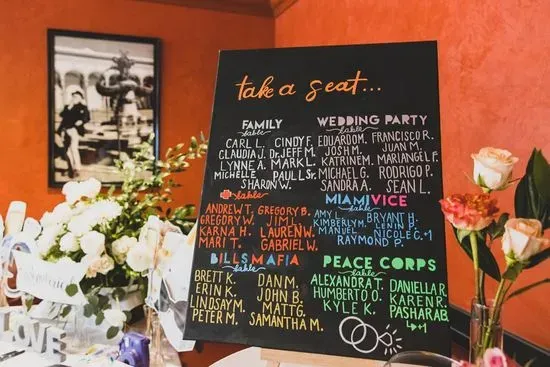 take a seat...
FAMILY
table
CARL L. CINDY F.
CLAUDIA J. Dr. JEFF M.
LYNNE A. MARK L.
MICHELLE PAUL S. Sr
SHARON W.
WEDDING PARTY
table
EDUARDO M. FRANCISCO R.
JOSH M. JUAN M.
KATRINE M. MARIANGEL F.
MICHAEL G. RODRIGO P.
SANDRA A. SEAN L.
table
ANDREW T. GREGORY B.
GREGORY W. JIM J.
KARNA H. LAUREN W.
MARI T. GABRIEL W.
MIAMI VICE
table
AMY L. BRYANT H.
KIMBERLY M. LENIN B.
MANUEL NICOLE C. +1
RAYMOND P.
BILLS MAFIA
table
BRETT K. DAN M.
ERIN K. JOHN B.
LINDSAY M. MATT G.
PETER M. SAMANTHA M.
PEACE CORPS
table
ALEXANDRA T. DANIELLA R.
HUMBERTO O. KAREN R.
KYLE K. PASHA R A B.
+1
LOVE